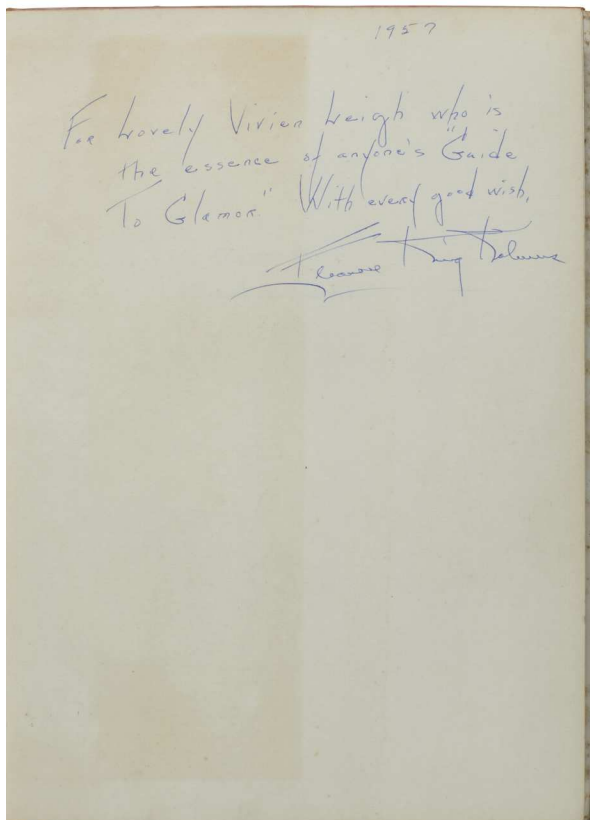 1957
For Lovely Vivien Leigh who is
the essence of anyone's "Guide
To Glamor." With every good wish,
Eleanore King